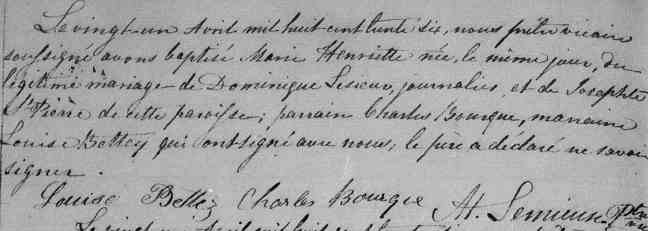 Le vingt-un Avril mil huit cent trente six, nous prêtre vicaire
soussigné avons baptisé Marie Henriette née, le même jour, du
légitime mariage de Dominique Lesieur, journalier, et de Josephte
St Pierre de cette paroisse; parrain Charles Bourque, marraine
Louise Bettez qui ont signé avec nous, le père a déclaré ne savoir
signer.
Louise Bettez Charles Bourque At. Lemieux Ptre
Le vingt-un Avril mil huit cent